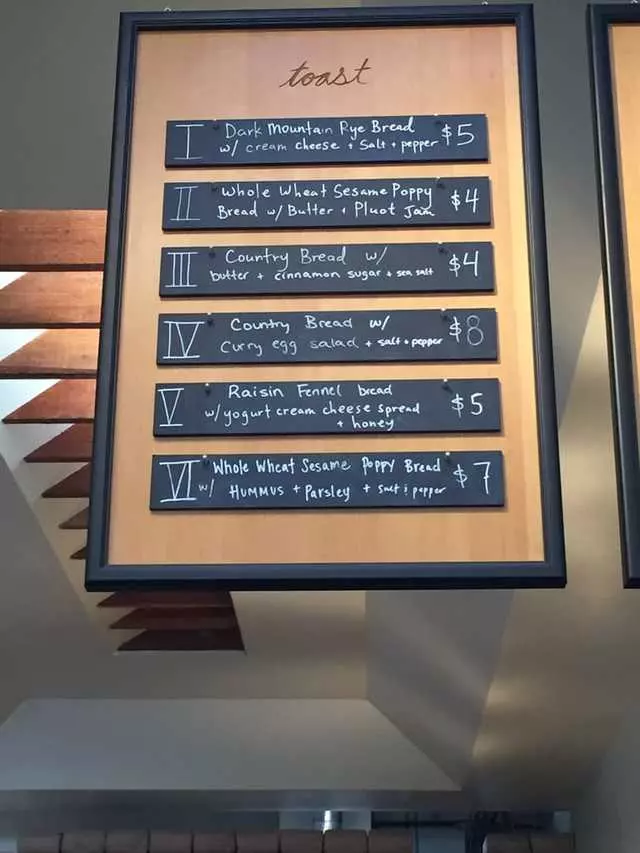 toast
I Dark Mountain Rye Bread $5
w/ cream cheese + Salt + pepper
II Whole Wheat Sesame Poppy $4
Bread w/ Butter + Pluot Jam
III Country Bread w/ $4
butter + cinnamon sugar + sea salt
IV Country Bread w/ $8
Curry egg salad + salt + pepper
V Raisin Fennel bread $5
w/ yogurt cream cheese spread
+ honey
VI Whole Wheat Sesame Poppy Bread $7
w/ HUMMUS + Parsley + salt & pepper